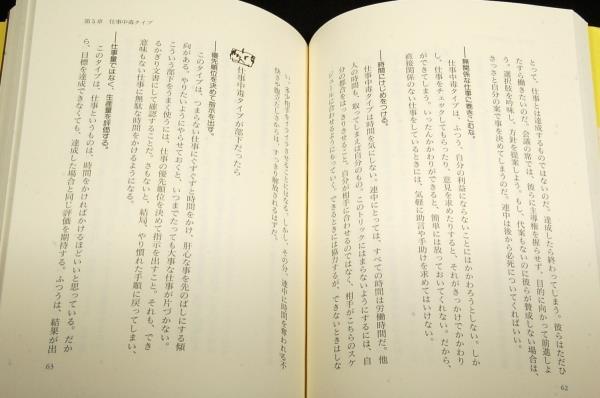 とって、仕事とは達成するものではないのだ。達成したら終わってしまう。彼らはただひ
たすら働きたいのだ。会議の席では、彼らに主導権を握らせず、目的に向かって前進しよ
う。選択肢を吟味し、方針を提案しよう。もし、代案もないのに彼らが賛成しない場合は、
さっさと自分の案で事を決めてしまうのだ。連中は後から必死についてくればいい。
――無関係な仕事に巻きこむな。
仕事中毒タイプは、ふつう、自分の利益にならないことにはかかわろうとしない。しか
し、仕事をチェックしてもらったり、意見を求めたりすると、それがきっかけでかかわり
ができてしまう。いったんかかわりができると、簡単には放っておいてくれない。だから、
直接関係のない仕事をしているときには、気軽に助言や手助けを求めてはいけない。
――時間にけじめをつける。
仕事中毒タイプは時間を気にしない。連中にとっては、すべての時間は労働時間だ。他
人の時間も、取ってしまえば自分のもの。このトリックにはまらないようにするには、自
分の都合をはっきりさせること。自分が相手に合わせるのではなく、相手がこちらのスケ
ジュールに合わせるようにもっていく。できるときには協力するが、できないときはしな
62
第5章 仕事中毒タイプ
い。
仕事中毒タイプが部下だったら
――優先順位を決めて指示を出す。
このタイプは、つまらない仕事にぐずぐずと時間をかけ、肝心な事を先のばしにする傾
向がある。やりたいようにやらせておくと、いつまでたっても大事な仕事が片づかない。
こういう部下をうまく使うには、仕事の優先順位を決めて指示を出すこと。それも、でき
るかぎり文書にして確認することだ。さもないと、結局、やり慣れた手順に戻ってしまい、
意味もない仕事に無駄な時間をかけるようになる。
――仕事量ではなく、生産量を評価する。
このタイプは、仕事というものは、時間をかければかけるほどいいと思っている。だか
ら、目標を達成できなくても、達成した場合と同じ評価を期待する。ふつうは、結果が出
63